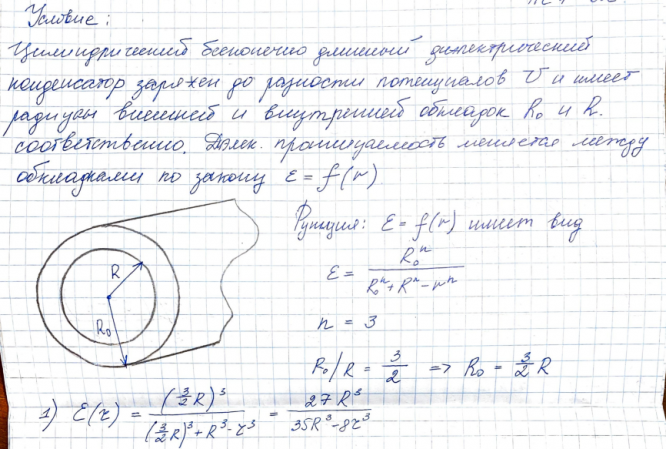 Условие:
Цилиндрический бесконечно длинный диэлектрический
конденсатор заряжен до разности потенциалов U и имеет
радиусы внешней и внутренней обкладок R₀ и R.
соответственно. Диэлек. проницаемость меняется между
обкладками по закону ε = f(r)
Функция: ε = f(r) имеет вид
ε = R₀ⁿ / (R₀ⁿ + Rⁿ - rⁿ)
n = 3
R₀/R = 3/2 => R₀ = 3/2 R
R
R₀
1) ε(r) = (3/2 R)³ / ((3/2 R)³ + R³ - r³) = 27R³ / (35R³ - 8r³)